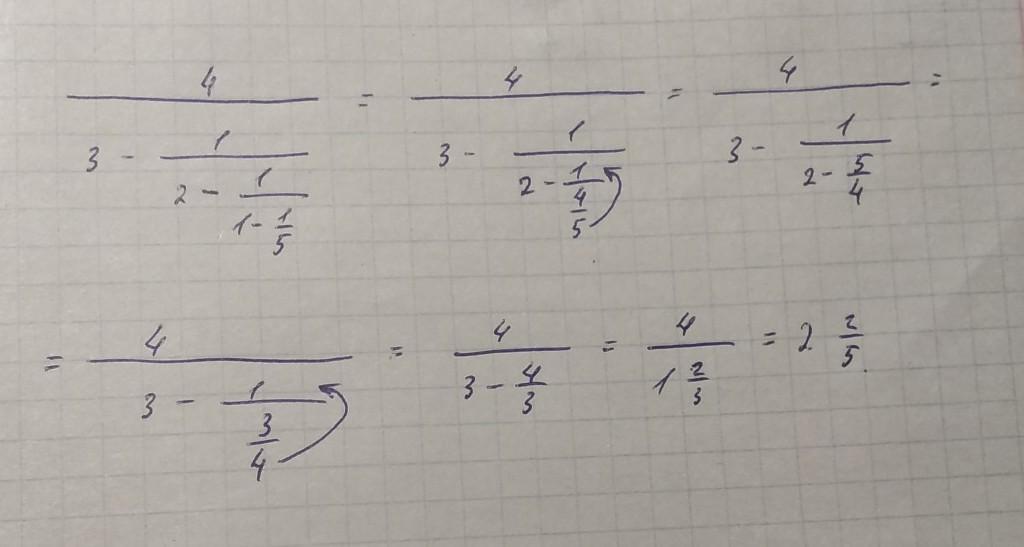 4/(3 - 1/(2 - 1/(1 - 1/5))) = 4/(3 - 1/(2 - 1/(4/5))) = 4/(3 - 1/(2 - 5/4)) =
= 4/(3 - 1/(3/4)) = 4/(3 - 4/3) = 4/(1 2/3) = 2 2/5.